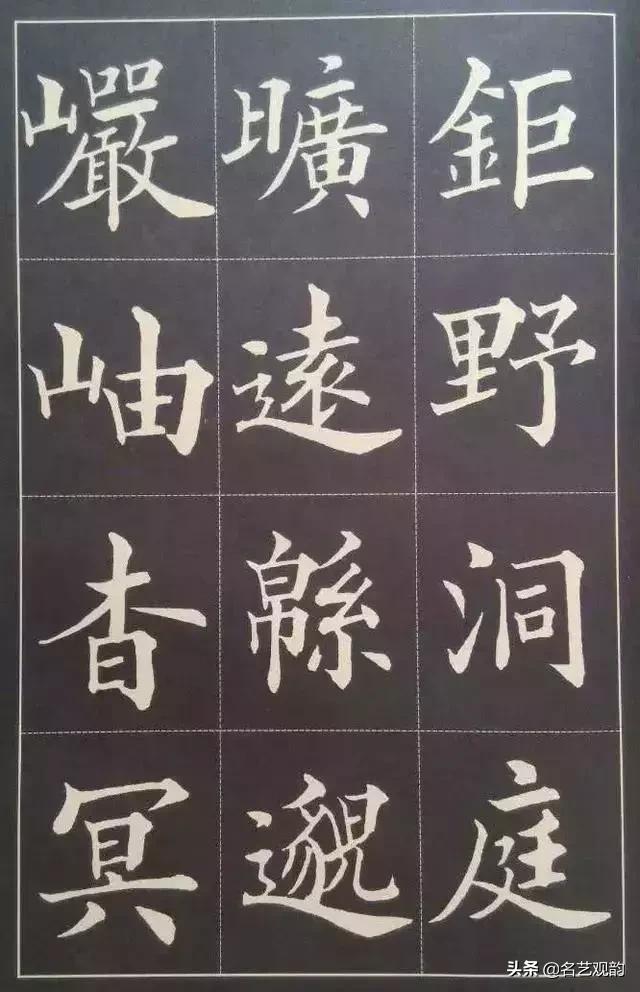 鉅野洞庭
曠遠緜邈
巖岫杳冥
头条 @名艺观韵